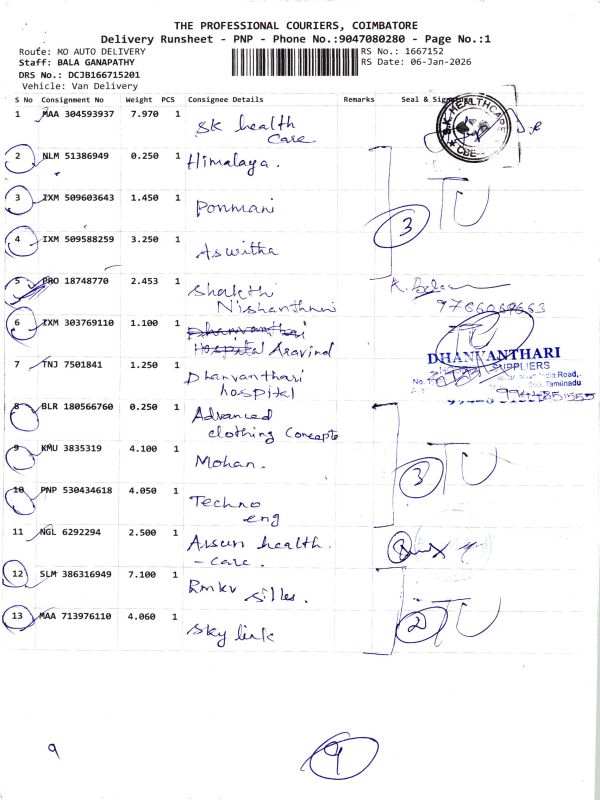 THE PROFESSIONAL COURIERS, COIMBATORE
Delivery Runsheet - PNP - Phone No.:9047080280 - Page No.:1
Route: MO AUTO DELIVERY
RS No.: 1667152
Staff: BALA GANAPATHY
RS Date: 06-Jan-2026
DRS No.: DCJB166715201
Vehicle: Van Delivery
S No Consignment No Weight PCS Consignee Details Remarks Seal &
1 MAA 304593937 7.970 1 SK health care
2 NLM 51386949 0.250 1 Himalaya.
3 IXM 509603643 1.450 1 Ponmani
3 TU
4 IXM 509588259 3.250 1 Aswitha
5 PRO 18748770 2.453 1 Shakthi
9786069663
6 IXM 303769110 1.100 1 Dhanvanthari
Hospital Aravind
7 TNJ 7501841 1.250 1 Dhanvanthari hospital
DHANVANTHARI
SUPPLIERS
Tamilnadu
8 BLR 180566760 0.250 1 Advanced clothing Concepts
9 KMU 3835319 4.100 1 Mohan.
3 TU
10 PNP 530434618 4.050 1 Techno eng
11 NGL 6292294 2.500 1 health - care.
12 SLM 386316949 7.100 1 Rmkv
13 MAA 713976110 4.060 1 Sky link
2 TU
9
9